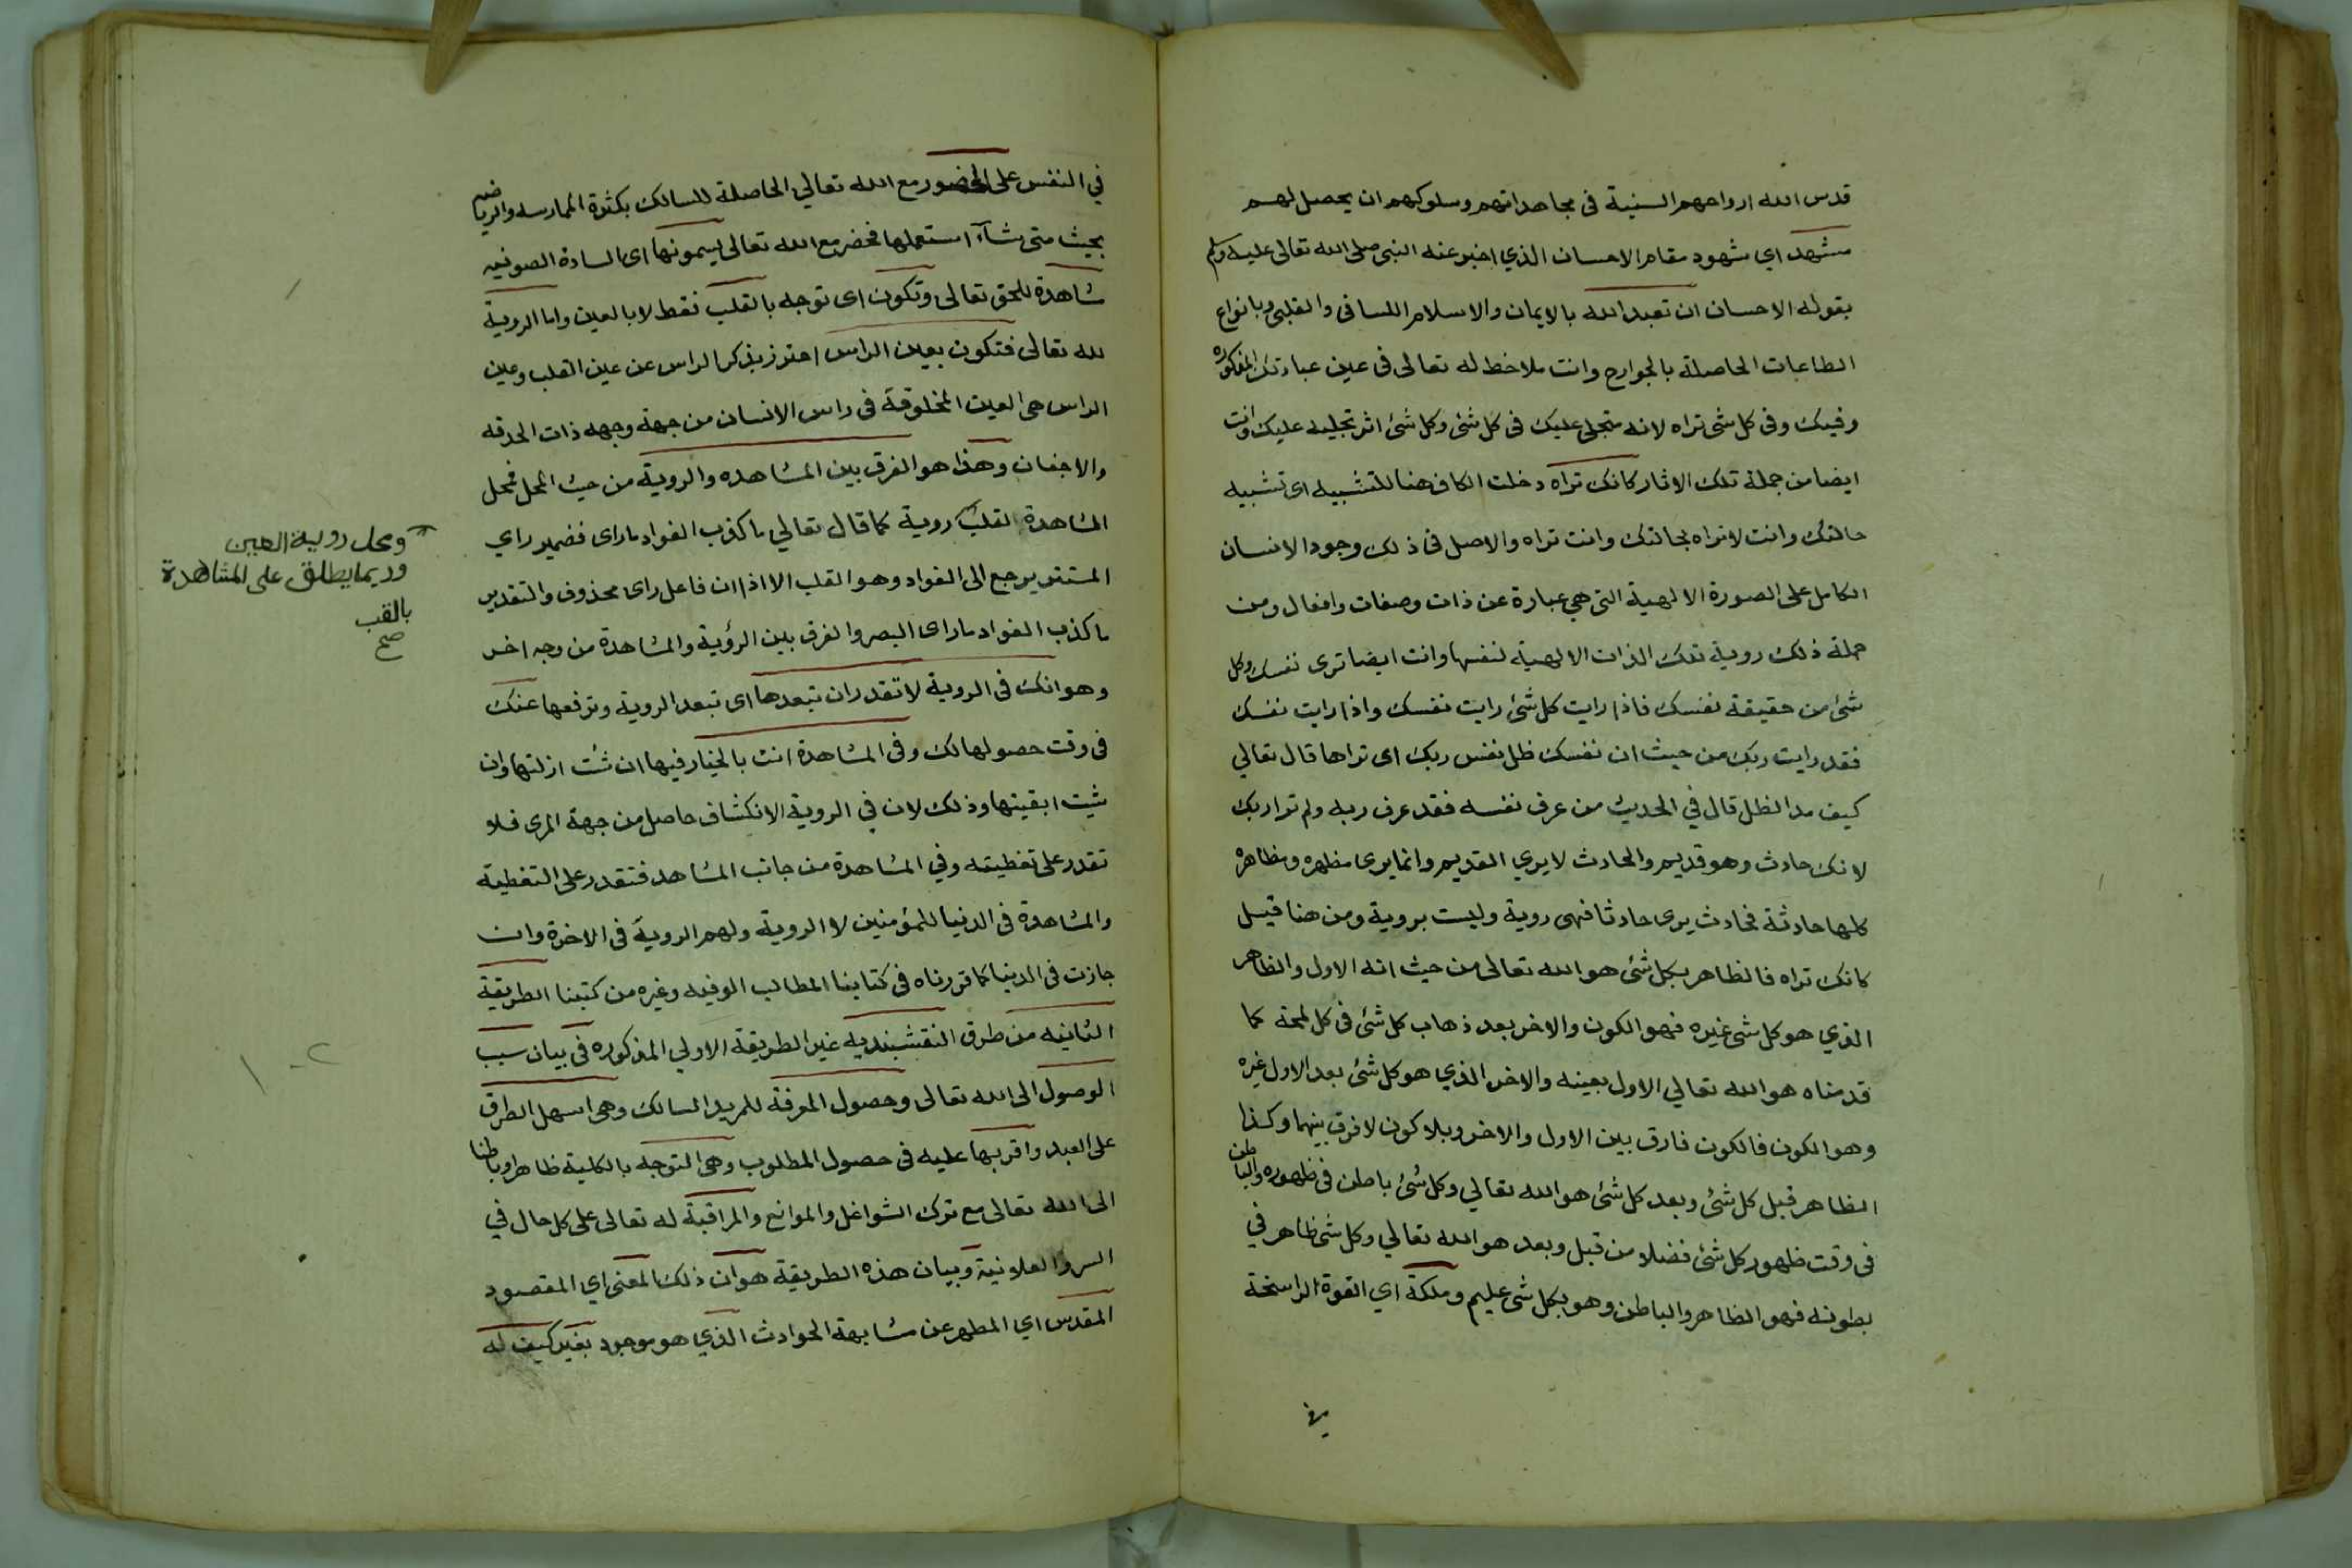 قدس الله ارواحهم السنية فى مجاهداتهم وسلوكهم ان يحصل لهم
مشهد اي شهود مقام الاحسان الذي اخبر عنه النبى صلى الله تعالى عليه وسلم
بقوله الاحسان ان تعبد الله بالايمان والاسلام اللسانى والقلبى وبانواع
الطاعات الحاصلة بالجوارح وانت ملاحظ له تعالى فى عين عبادتك المذكوره
وفيك وفى كل شى تراه لانه متجلى عليك فى كل شئ وكل شئ اثر تجليه عليك وانت
ايضا من جملة تلك الاثار كانك تراه دخلت الكاف هنا للتشبيه اى تشبيه
حالتك وانت لا تراه بحالتك وانت تراه والاصل فى ذلك وجود الانسان
الكامل على الصورة الالهية التى هي عبارة عن ذات وصفات وافعال ومن
جملة ذلك روية تلك الذات الالهية لنفسها وانت ايضا ترى نفسك وكل
شئ من حقيقة نفسك فاذا رايت كل شئ رايت نفسك واذا رايت نفسك
فقد رايت ربك من حيث ان نفسك ظل نفس ربك اى تراها قال تعالي
كيف مد الظل قال في الحديث من عرف نفسه فقد عرف ربه ولم تر اربك
لانك حادث وهو قديم والحادث لا يري القديم وانما يرى مظهره ومظاهره
كلها حادثة فحادث يرى حادثا فهى روية وليست بروية ومن هنا قيل
كانك تراه فالظاهر بكل شئ هو الله تعالى من حيث انه الاول والظاهر
الذي هو كل شى غيره فهو الكون والاخر بعد ذهاب كل شئ فى كل لمحة كما
قدمناه هو الله تعالي الاول بعينه والاخر الذي هو كل شئ بعد الاول غيره
وهو الكون فالكون فارق بين الاول والاخر وبلا كون لا فرق بينهما وكذا
الظاهر قبل كل شئ وبعد كل شئ هو الله تعالي وكل شئ باطن فى ظهوره والباطن
فى وقت ظهور كل شئ فضلا من قبل وبعد هو الله تعالي وكل شى ظاهر في
بطونه فهو الظاهر والباطن وهو بكل شى عليم وملكة اي القوة الراسخة
في
في النفس على الحضور مع الله تعالي الحاصلة للسالك بكثرة الممارسه والرياضه
بحيث متى شآء استعملها فحضر مع الله تعالى يسمونها اى السادة الصوفيه
مشاهدة للحق تعالى وتكون اى توجد بالقلب فقط لا بالعين واما الروية
لله تعالى فتكون بعين الراس احترز بذكر الراس عن عين القلب وعين
الراس هى العين المخلوقة فى راس الانسان من جهة وجهه ذات الحدقه
والاجفان وهذا هو الفرق بين المشاهده والروية من حيث المحل فمحل
المشاهدة القلب روية كما قال تعالي ما كذب الفواد ما راى فضمير راي
المستتر يرجع الى الفواد وهو القلب الا اذا ان فاعل راى محذوف والتقدير
ما كذب الفواد ما راى البصر والفرق بين الرؤية والمشاهدة من وجه اخر
وهو انك فى الروية لا تقدر ان تبعدها اى تبعد الروية وترفعها عنك
فى وقت حصولها لك وفى المشاهدة انت بالخيار فيها ان شئت ازلتها وان
شيت ابقيتها وذلك لان في الروية الانكشاف حاصل من جهة المرى فلا
تقدر على تغطيته وفي المشاهدة من جانب المشاهد فتقدر على التغطية
والمشاهدة فى الدنيا للمؤمنين لا الروية ولهم الروية فى الاخرة وان
جازت فى الدنيا كما قررناه فى كتابنا المطالب الوفيه وغيره من كتبنا الطريقة
الثانيه من طرق النقشبنديه غير الطريقة الاولي المذكوره فى بيان سبب
الوصول الى الله تعالى وحصول المعرفة للمريد السالك وهى اسهل الطرق
على العبد واقربها عليه فى حصول المطلوب وهى التوجه بالكلية ظاهرا وباطنا
الى الله تعالى مع ترك الشواغل والموانع والمراقبة له تعالى على كل حال في
السر والعلانية وبيان هذه الطريقة هو ان ذلك المعنى اي المقصود
المقدس اي المطهر عن مشابهة الحوادث الذي هو موجود بغير كيف له
ومحل روية العين
وربما يطلق على المشاهدة
بالقب
صح